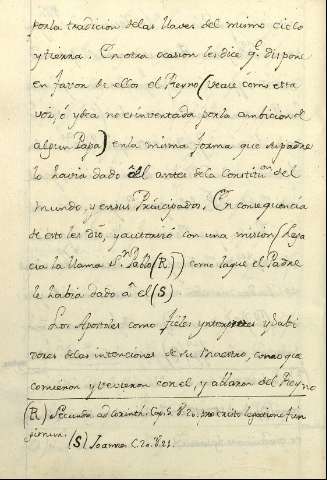 por la tradicion de las llaves del mismo cielo
y tierra. En otra ocasion les dice q.e dispone
en favor de ellos el Reyno (vease como esta
voz, ó ydea no es inventada por la ambicion de
algun Papa) en la misma forma que su padre
lo havia dado â el antes de la Constituon del
mundo, y en sus Principados. En consequencia
de esto les dió, y autorizó con una mision (Lega
cia la llama Sn Pablo (R)) como la que el Padre
le había dado â el (S)
Los Apostoles como fieles ynterpretes y sabi
dores de las intenciones de su Maestro, como que
comieron y vevieron con el, y ablaron del Reyno
(R) Secunda ad Corinth. Cap. 5. V. 20. pro Cristo legatione fun
gimur. (S) Joann. C. 20. V. 21.